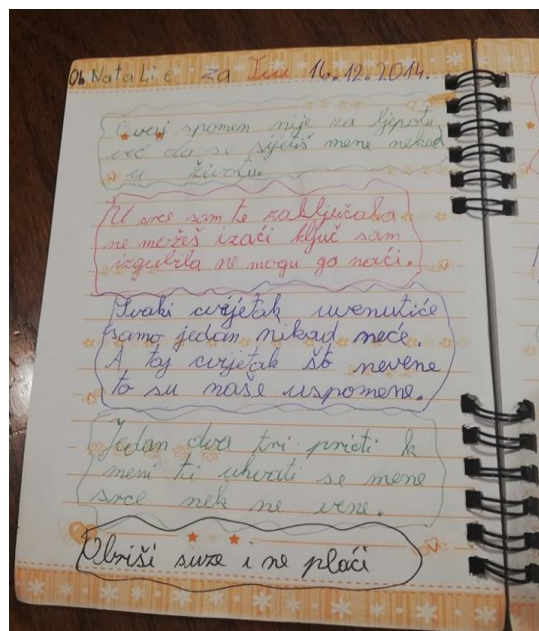 Ob Natalie za Ivu 16.12.2014.
Ovaj spomen nije za ljepotu,
već da se sjetiš mene nekad
u životu.
U srce sam te zaključala
ne možeš izaći ključ sam
izgubila ne mogu ga naći.
Svaki cvijetak uvenutiće
samo jedan nikad neće
A taj cvijetak što nevene
to su naše uspomene.
Jedan dva tri priđi k
meni ti uhvati se mene
srce nek ne vene.
Obriši suze i ne plači